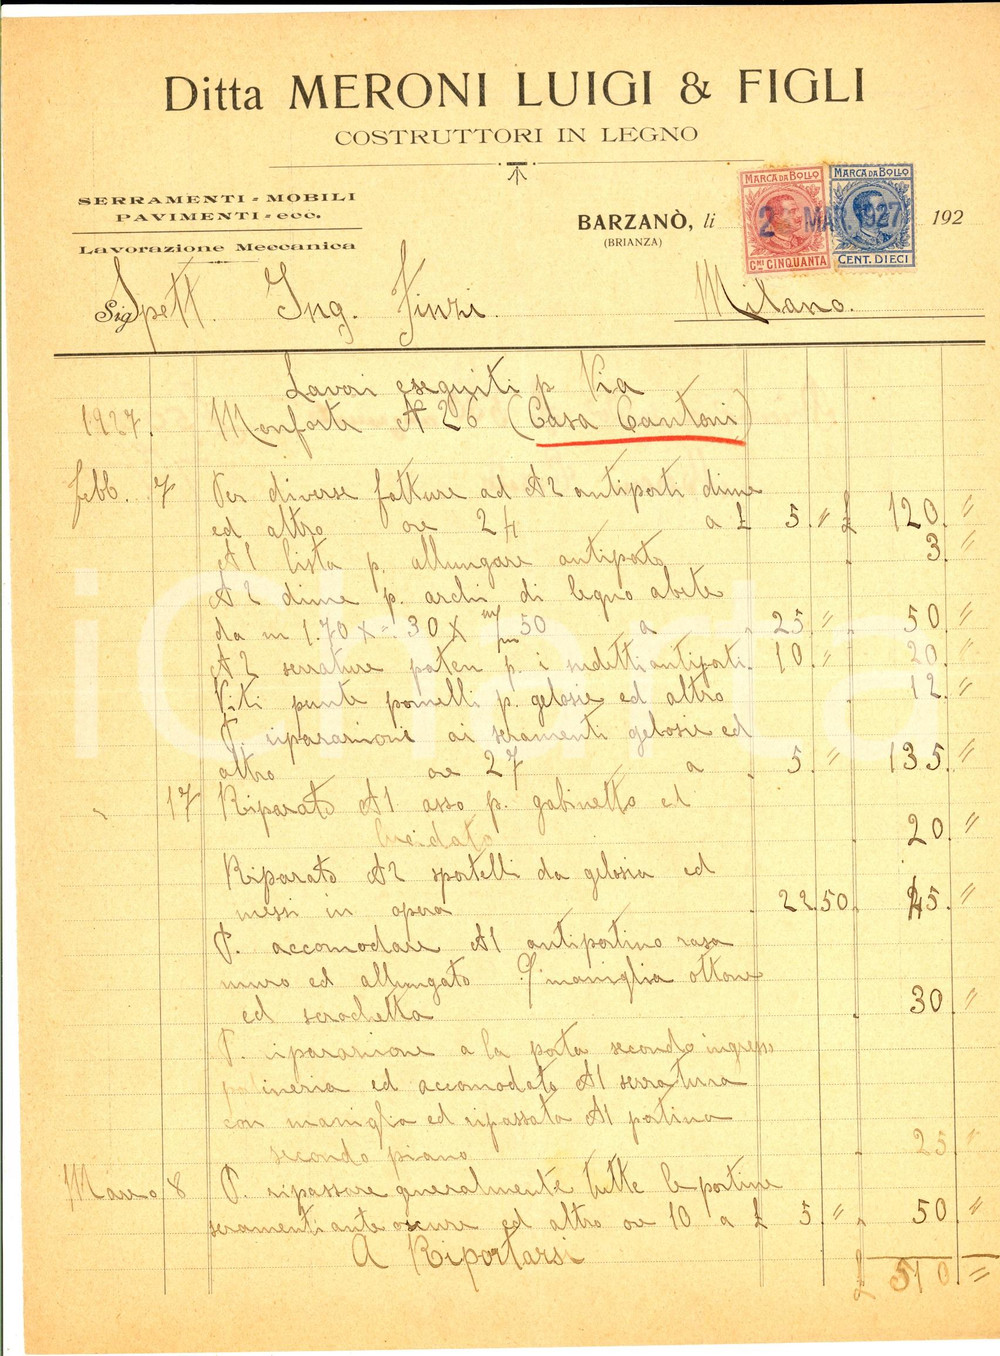 Ditta MERONI LUIGI & FIGLI
COSTRUTTORI IN LEGNO
SERRAMENTI - MOBILI
PAVIMENTI - ecc.
Lavorazione Meccanica
BARZANÒ, li 192
(BRIANZA)
MARCA DA BOLLO MARCA DA BOLLO
2 MAR. 1927
Cmi CINQUANTA CENT. DIECI
Sig Spett. Ing. Finzi. Milano.
Lavori eseguiti p Via
1927. Monforte N 26 (Casa Cantoni)
febb. 7 Per diverse fatture ad N 2 antiporti dime
ed altro ore 24 a £ 5 " £ 120. "
N 1 lista p. allungare antiporto 3. "
N 2 dime p. archi di legno abete
da m 1.70 x = 30 x m/m 50 a 25 " 50 "
N 2 serrature paten p. i sudetti antiporti. 10. " 20. "
Viti punte pomelli p. gelosie ed altro 12. "
P. riparazioni ai seramenti gelosie ed
altro ore 27 a 5. " 135. "
" 17 Riparato N 1 asso p. gabinetto ed
lucidato 20. "
Riparato N 2 sportelli da gelosia ed
messi in opera 22.50. 45. "
P. accomodare N 1 antiportino rasa
muro ed allungato maniglia ottone
ed scrochetta 30 "
P. riparazione a la porta secondo ingresso
portineria ed accomodato N 1 serratura
con maniglia ed ripassata N 1 portina
secondo piano 25 "
Marzo 8 P. ripassare generalmente tutte le portine
seramenti ante oscure ed altro ore 10 a £ 5 " 50 "
A Riportarsi
£ 510 =
iCharta